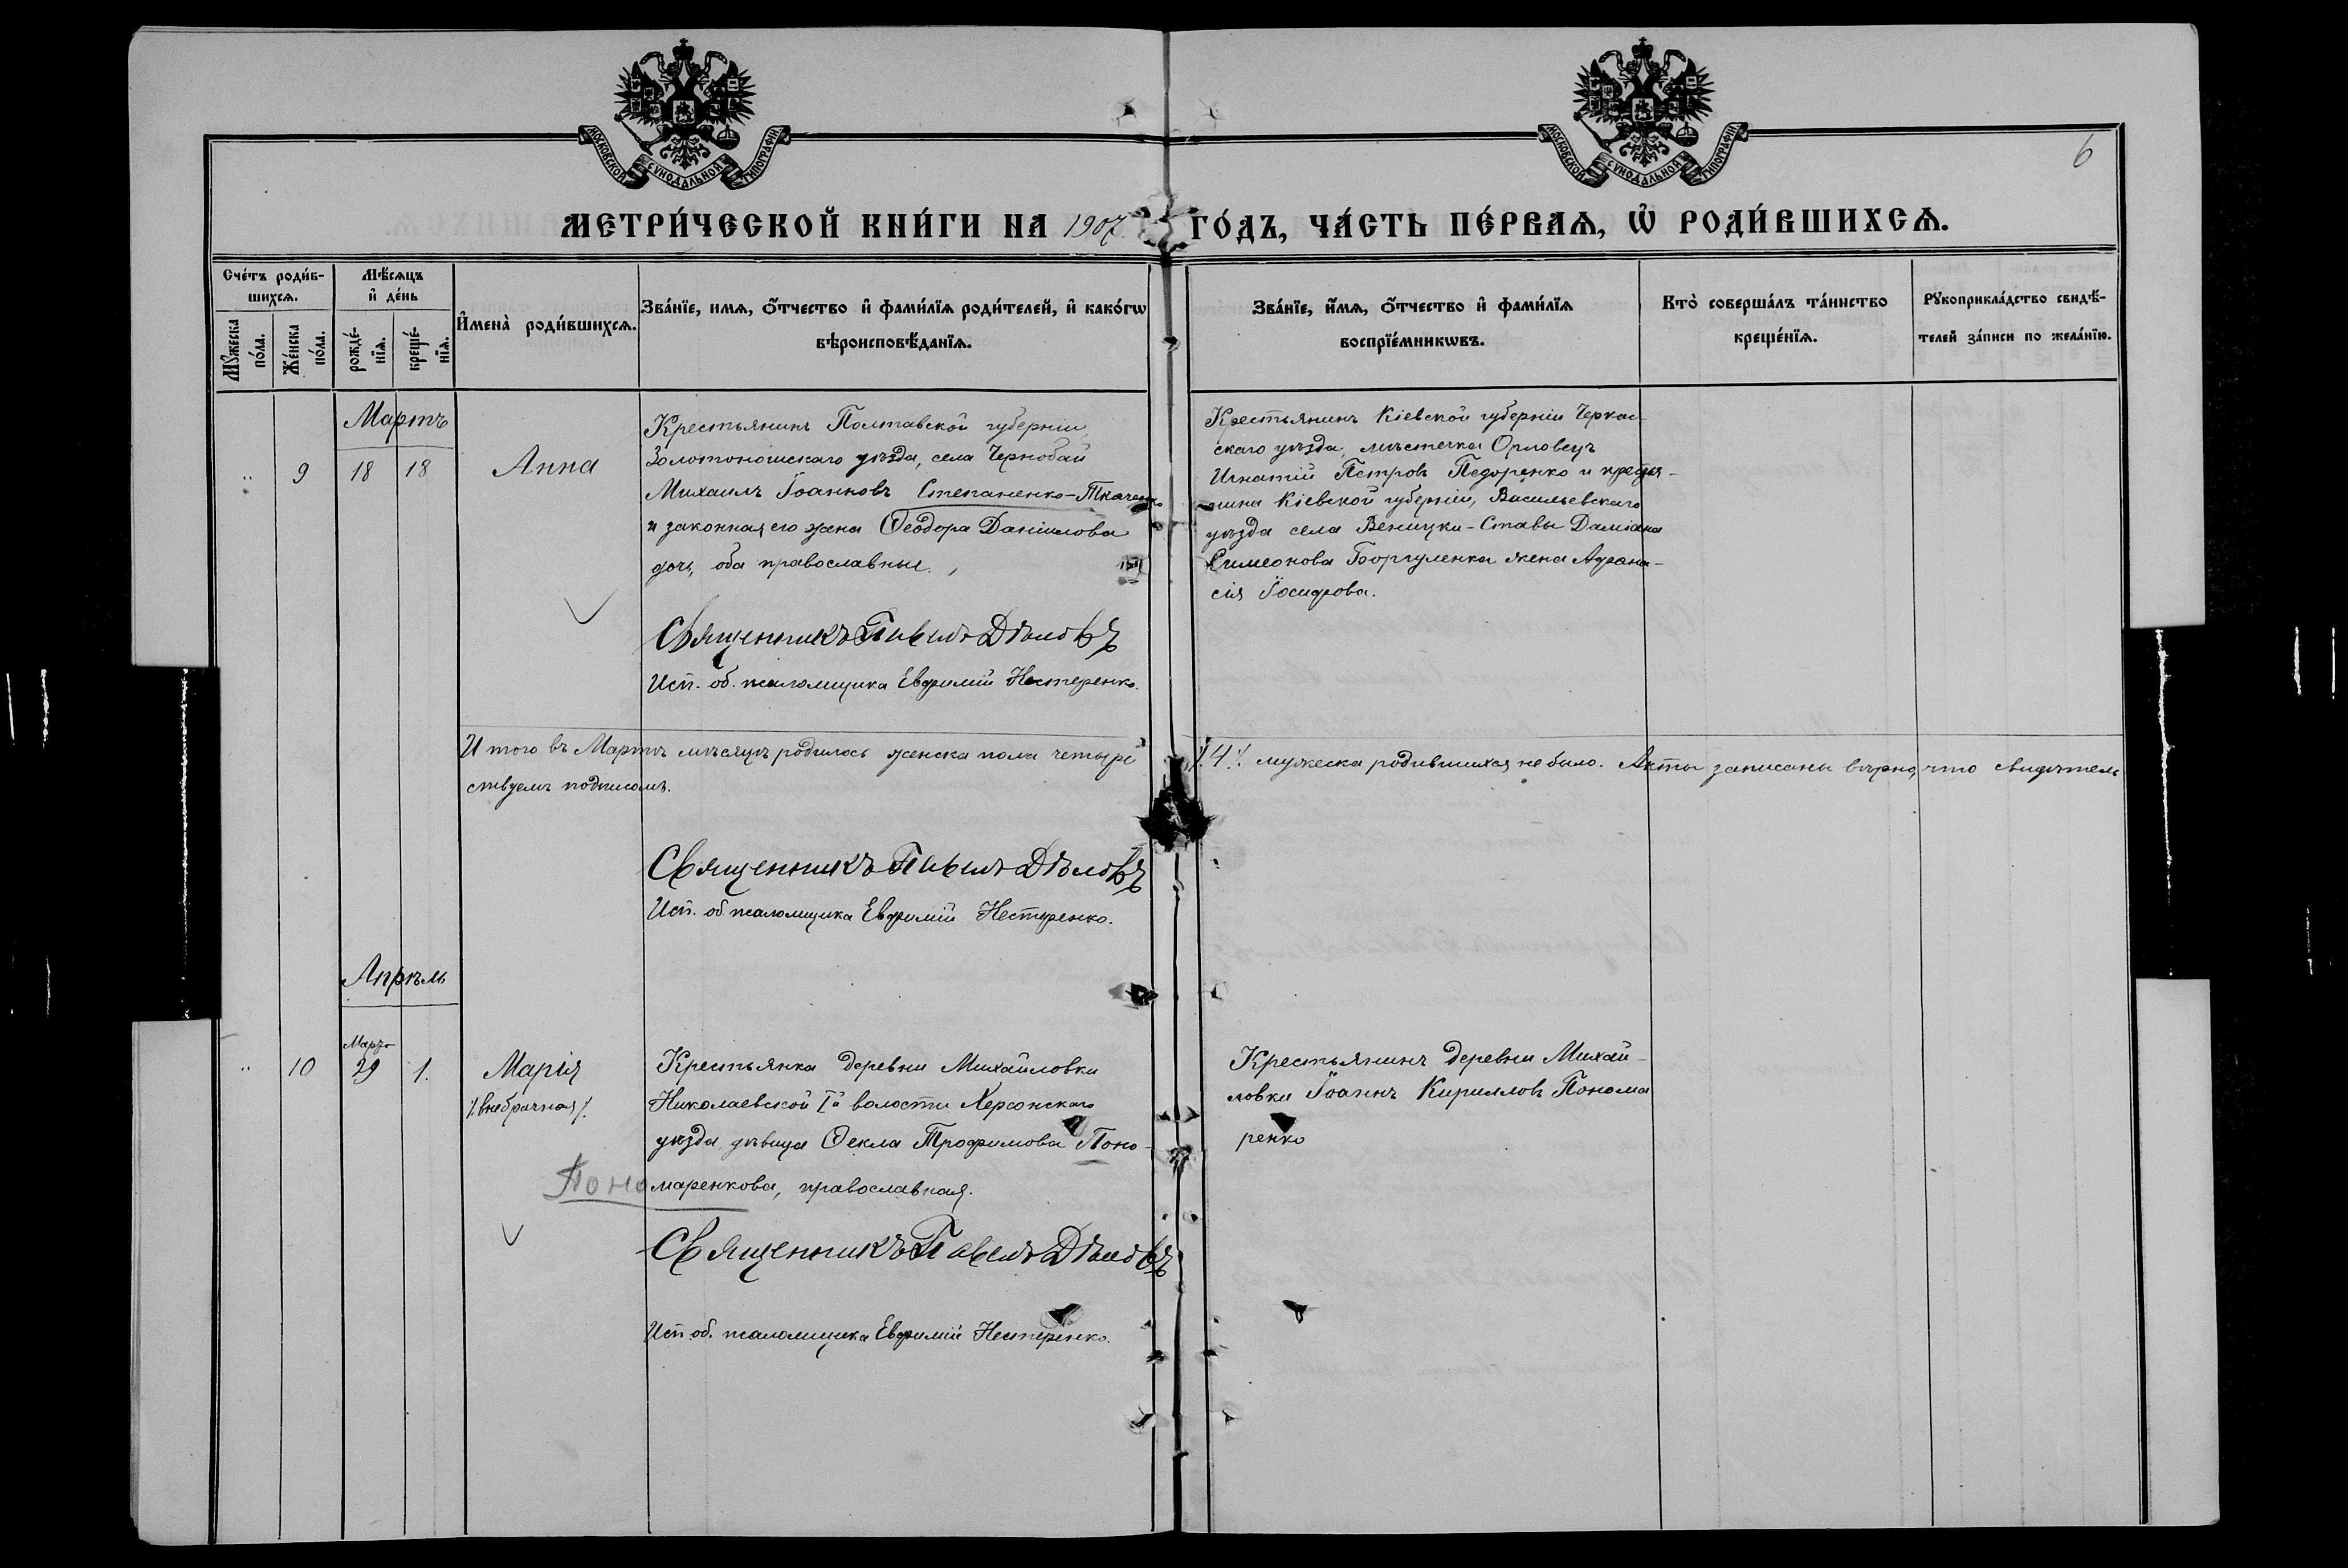 МОСКОВСКОЙ СѴНОДАЛЬНОЙ ТИПОГРАФІИ
МОСКОВСКОЙ СѴНОДАЛЬНОЙ ТИПОГРАФІИ
6
МЕТРИ́ЧЕСКОЙ КНИ́ГИ НА 1907 ГО́ДЪ, ЧА́СТЬ ПЕ́РВАѦ, Ѡ҆ РОДИ́ВШИХСѦ.
Сче́тъ роди́в-
шихсѧ.
Мꙋ́жеска по́ла.
Же́нска по́ла.
Мѣ́сѧцъ
и҆ де́нь
рожде́-
нїѧ.
креще́-
нїѧ.
И҆мена̀ роди́вшихсѧ.
Зва́нїе, имѧ, ѻ҆́тчество и҆ фами́лїѧ роди́телей, и҆ како́гѡ
вѣроисповѣ́данїѧ.
Зва́нїе, и҆́мѧ, ѻ҆́тчество и҆ фами́лїѧ
воспрїе́мникѡвъ.
Кто̀ соверша́лъ та́инство
креще́нїѧ.
Рꙋкоприкла́дство свидѣ́-
телей за́писи по жела́нїю.
Мартъ
" 9 18 18 Анна
Крестьянинъ Полтавской губерніи
Золотоношскаго уѣзда, села Чернобай
Михаилъ Іоанновъ Степаненко-Ткаченко
и законная его жена Ѳеодора Даніилова
дочь, оба православные.
Священникъ Павелъ Дѣловъ
Исп. об. псаломщика Евфимій Нестеренко.
Крестьянинъ Кіевской губерніи Черкас-
скаго уѣзда, мѣстечка Орловецъ
Игнатій Петровъ Педоренко и крестья-
нина Кіевской губерніи, Васильевскаго
уѣзда села Веницки-Ставы Даміана
Симеонова жена Афана-
сія Іосифова.
И того въ Мартѣ мѣсяцѣ родилось женска пола четыре ⁒ 4 ⁒ мужеска родившихся не было. Акты записаны вѣрно, что свидѣтель
ствуемъ подписомъ.
Священникъ Павелъ Дѣловъ
Исп. об. псаломщика Евфимій Нестеренко.
Апрѣль
Март
" 10 29 1. Марія
⁒ внебрачная ⁒
Крестьянка деревни Михайловки
Николаевской Iй волости Херсонскаго
уѣзда, дѣвица Ѳекла Трофимова Поно-
Поно маренкова, православная.
Священникъ Павелъ Дѣловъ
Исп. об. псаломщика Евфимій Нестеренко.
Крестьянинъ деревни Михай-
ловки Іоаннъ Кирилловъ Понома
ренко